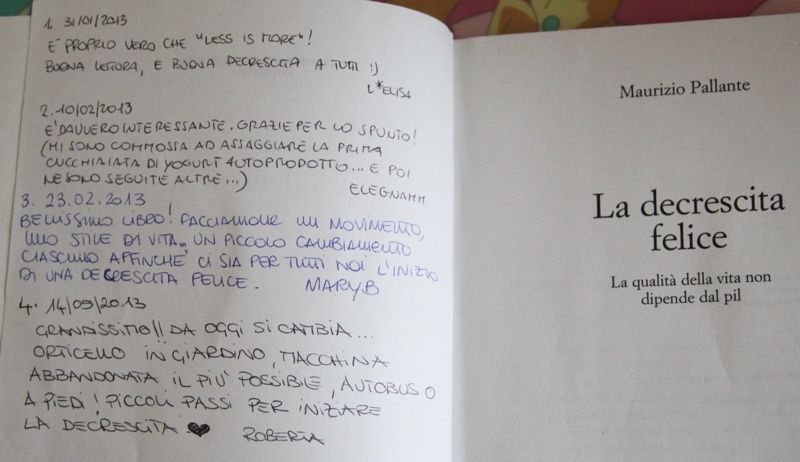 1. 31/01/2013
E' PROPRIO VERO CHE "LESS IS MORE"!
BUONA LETTURA, E BUONA DECRESCITA A TUTTI :)
L*ELISA
2. 10/02/2013
E' DAVVERO INTERESSANTE. GRAZIE PER LO SPUNTO!
(MI SONO COMMOSSA AD ASSAGGIARE LA PRIMA
CUCCHIAIATA DI YOGURT AUTOPRODOTTO... E POI
NE SONO SEGUITE ALTRE...)
ELEGNAMM
3. 23.02.2013
BELLISSIMO LIBRO! FACCIAMONE UN MOVIMENTO,
UNO STILE DI VITA... UN PICCOLO CAMBIAMENTO
CIASCUNO AFFINCHE' CI SIA PER TUTTI NOI L'INIZIO
DI UNA DECRESCITA FELICE. MARYB
4. 14/03/2013
GRANDISSIMO!! DA OGGI SI CAMBIA...
ORTICELLO IN GIARDINO, MACCHINA
ABBANDONATA IL PIU' POSSIBILE, AUTOBUS O
A PIEDI! PICCOLI PASSI PER INIZIARE
LA DECRESCITA ♥ ROBERTA
Maurizio Pallante
La decrescita
felice
La qualità della vita non
dipende dal pil